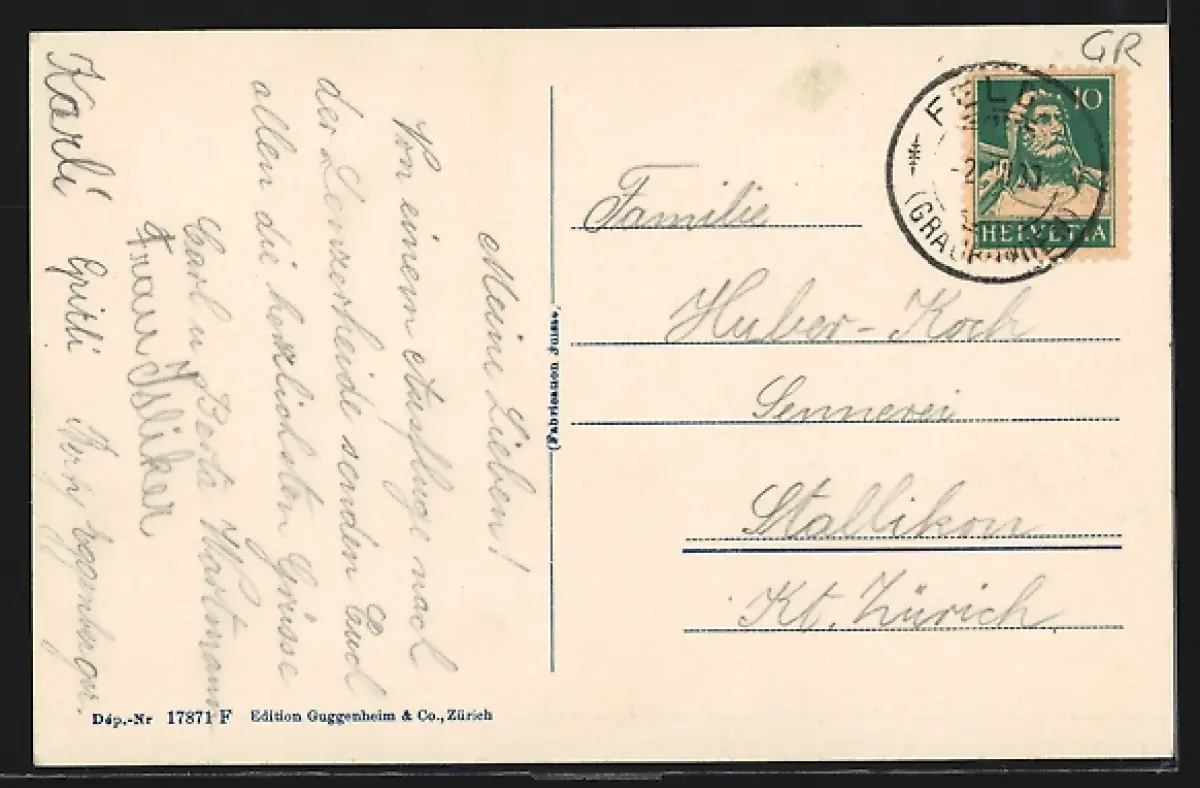 Meine Lieben!
Von einem Ausfluge nach
der Lenzerheide senden Euch
allen die herzlichsten Grüsse
Carl u. Berta Wartmann
Frau Isliker
Karli Gritli Eggenberger.
(Fabrication Suisse)
Dép.-Nr 17871 F Edition Guggenheim & Co., Zürich
GR
10
HELVETIA
(GRAUBÜNDEN)
Familie
Huber-Koch
Sennerei
Stallikon
Kt. Zürich